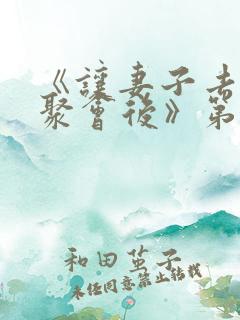 《讓妻子去
聚會後》第
和田茧子
未经同意禁止转载